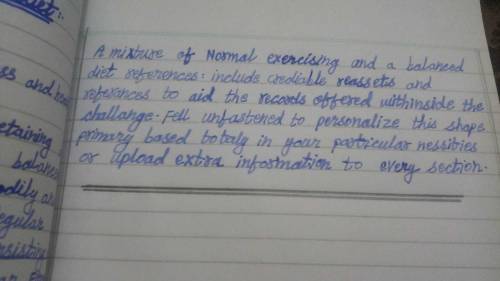 diet:-
ss and hea
etaining
balance
odify an
egular
nsistory
A mixture of Normal exercising and a balanced
diet references: include crediable reassetis and
referances to aid the records offered withinside the
challange. Fell unfastened to personalize this shape
primary based totaly in your particular nessities
or upload extra information to every section.